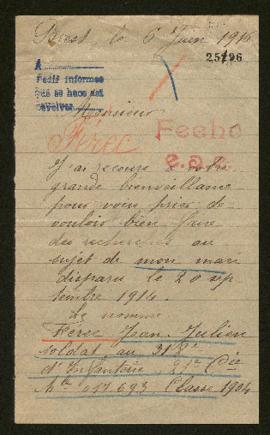 Brest le 6 Juin 1916
25196
A
Pedir informes
que se hace así
devolver
Monsieur
Férec
Fecho
J'ai recours à votre
grande bienveillance
pour vous prier de
vouloir bien faire
des recherches au
sujet de mon mari
disparu le 20 sep
tembre 1914.
Le nommé
Férec Jean Julien
soldat au
d'Infanterie 21e Cie
Mle 017.693 Classe 1904